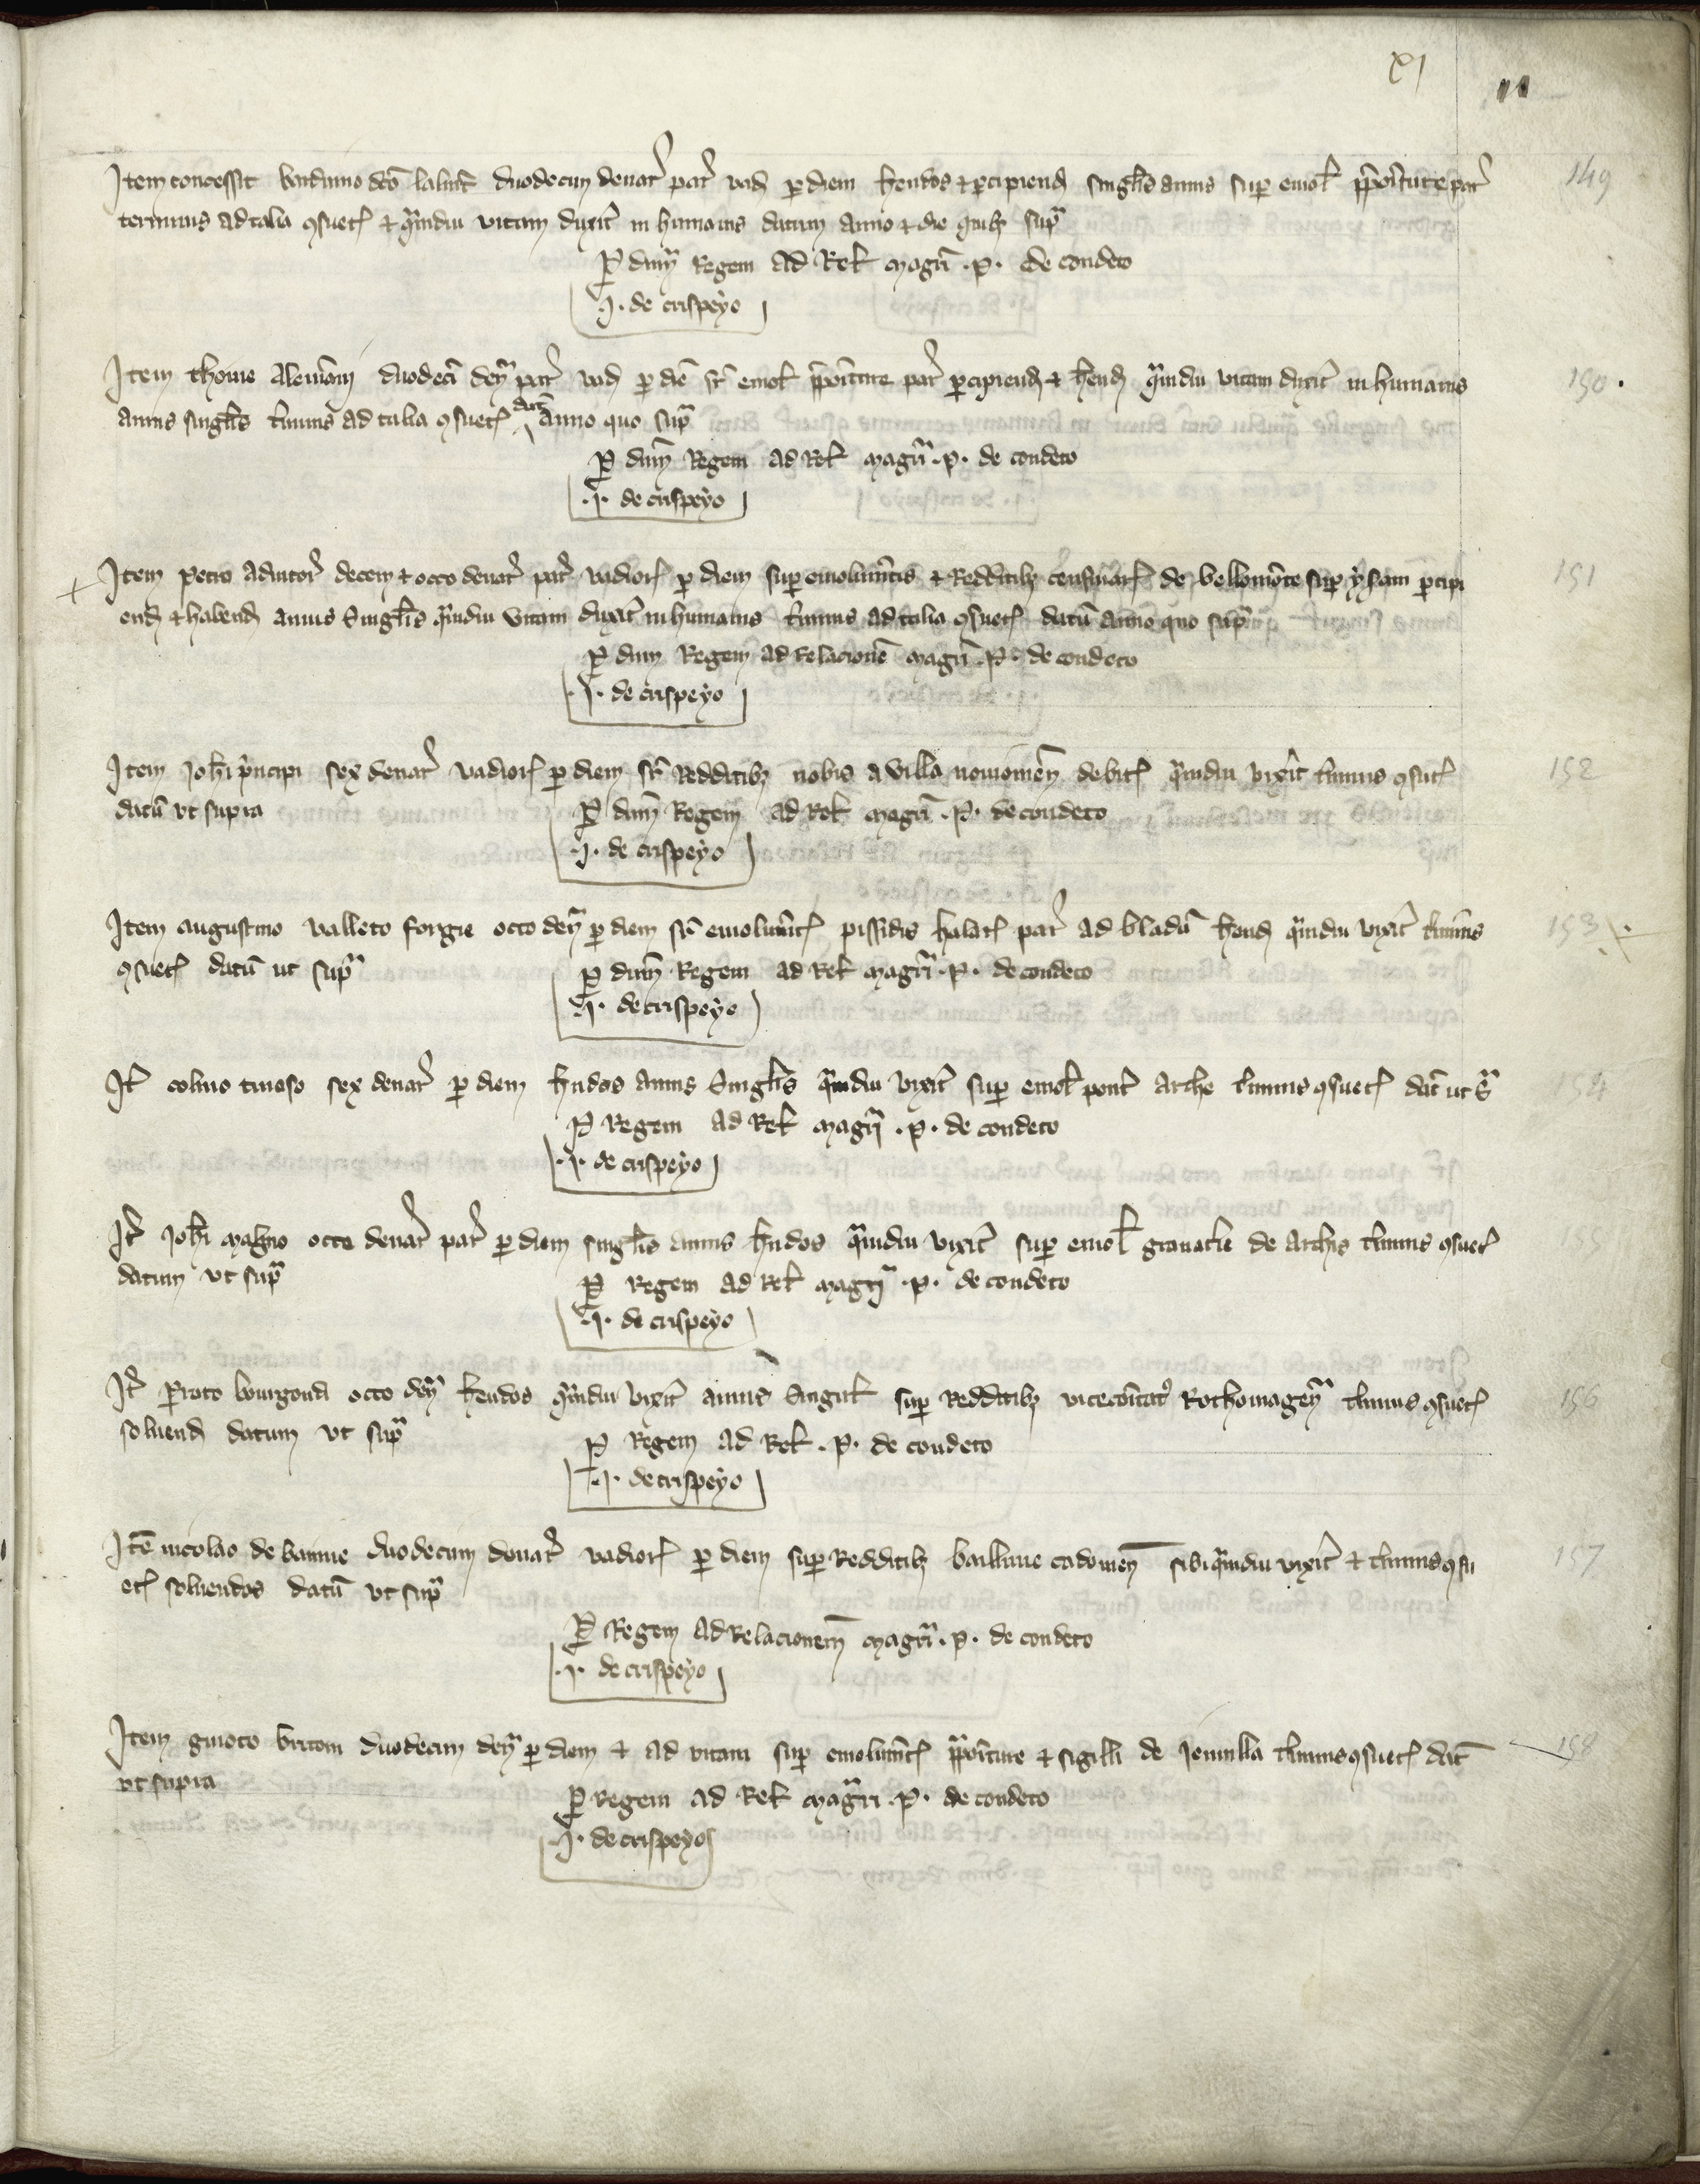 XI
11
Item concessit barduino dco duodecim denar par vad per diem hendos & percipiend singlis annis super emol ppoiture par 149
terminis ad talia gsuet & qmdiu vitam duxit in humanis datum anno & die quib supra
P dnm Regem ad Rel magri .P. de condeto
J. de crispeyo
Item thome alemani duodeci den par vad per die sr emol ppoiture par percipiend & hend qmdiu vitam duxit in humanis 150.
annis singlis tminis ad talia gsuet dat anno quo supra
P dnm Regem ad Rel magri .P. de condeto
.J. de crispeyo
Item petro adiutor decem & octo denar par vadior per diem super emolumtis & Redditib censivar de bellomote super ysam percipi 151
end & habend annis singlis qmdiu vitam duxit in humanis tminis ad talia gsuet datu anno quo supra
P dnm Regem ad relacione magri .P. de condeto
.J. de crispeyo
Item Johi pncipi sex denar vadior per diem sr Redditib nobis a villa noviomen debit qmdiu vixit tminis gsuet 152
datu ut supra P dnm Regem ad Rel magri .P. de condeto
.J. de crispeyo
Item augustino valleto forgie octo den per diem sr emolumt pissidis halar par ad bladu hend qmdiu vixit tminis 153
gsuet datu ut supra P dnm Regem ad Rel magri .P. de condeto
J. de crispeyo
It colino tinoso sex denar per diem hndos annis singlis qmdiu vixit super emol pont arche tminis gsuet dat ut s 154
P Regem ad Rel magri .P. de condeto
.J. de crispeyo
It Johi magno octo denar par per diem singlis annis hndos qmdiu vixit super emol granatie de archis tminis gsuet 155
datum ut supra P Regem ad Rel magri .P. de condeto
.J. de crispeyo
It Peroto bourgondi octo den hendos qmdiu vixit annis singul super Redditib vicecoitat Rothomagen tminis gsuet 156
solvend datum ut supra P Regem ad Rel .P. de condeto
.J. de crispeyo
Ite nicolao de duodecim denar vadior per diem super Redditib baillivie cadomen sibi qmdiu vixit & tminis gsu 157
et solvendos datu ut supra
P Regem ad Relacionem magri .P. de condeto
.J. de crispeyo
Item guioto britoni duodecim den per diem & ad vitam super emolumt ppoiture & sigilli de Jenvilla tminis gsuet dat 158
ut supra
P regem ad Rel magri .P. de condeto
.J. de crispeyo